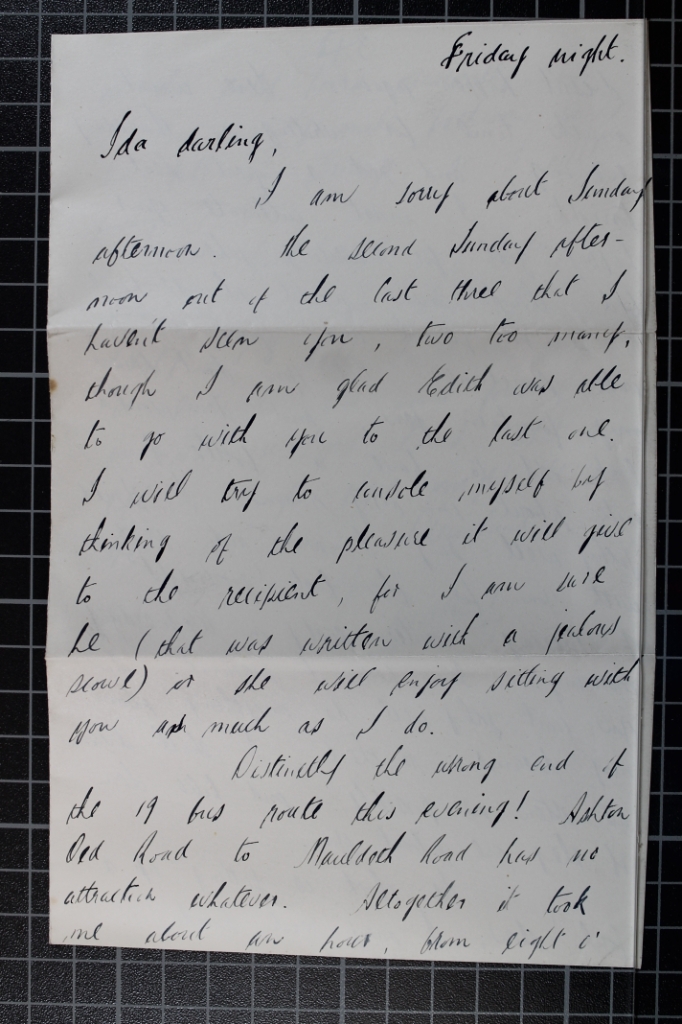 Friday night.
Ida darling,
I am sorry about Sunday
afternoon. The second Sunday after-
noon out of the last three that I
haven't seen you, two too many,
though I am glad Edith was able
to go with you to the last one.
I will try to console myself by
thinking of the pleasure it will give
to the recipient, for I am sure
he (that was written with a jealous
scowl) or she will enjoy sitting with
you as much as I do.
Distinctly the wrong end of
the 19 bus route this evening! Ashton
Old Road to Mauldeth Road has no
attraction whatever. Altogether it took
me about an hour, from eight o'